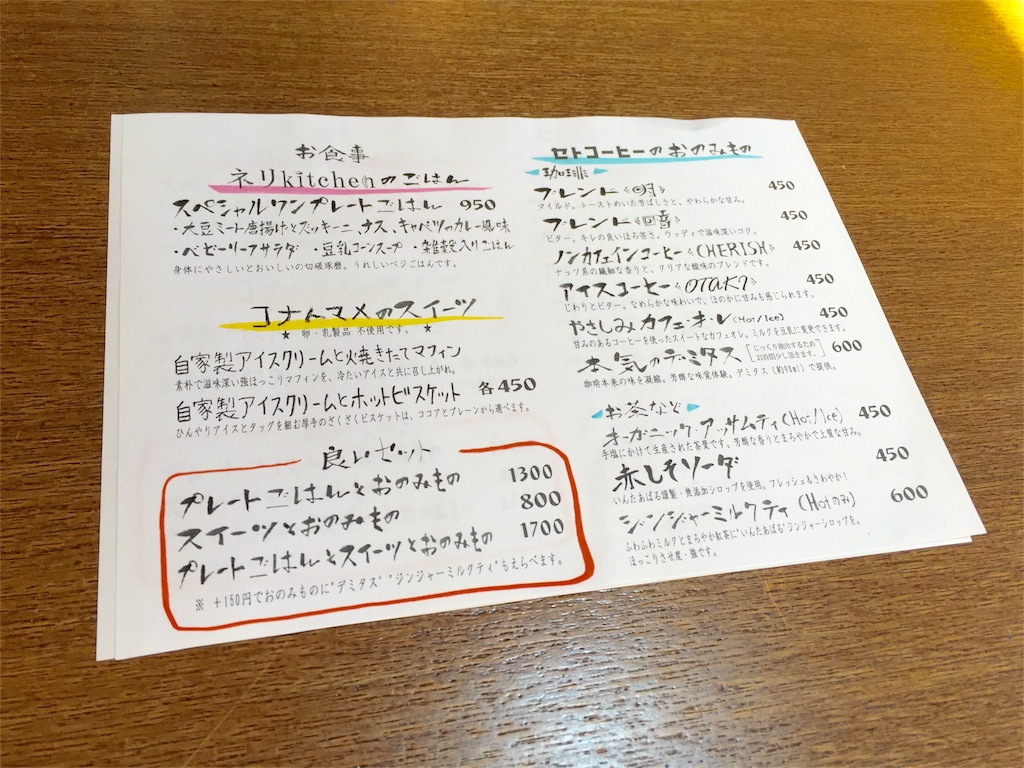 お食事
ネリkitchenのごはん
スペシャルワンプレートごはん 950
・大豆ミート唐揚げとズッキーニ、ナス、キャベツのカレー風味
・ベビーリーフサラダ ・豆乳コーンスープ ・雑穀入りごはん
身体にやさしいとおいしいの切磋琢磨。うれしいベジごはんです。
コナトマメのスイーツ
★ 卵・乳製品 不使用です。 ★
自家製アイスクリームと火焼きたてマフィン
素朴で滋味深い強ほっこりマフィンを、冷たいアイスと共に召し上がれ。
自家製アイスクリームとホットビスケット 各450
ひんやりアイスとタッグを組む厚手のざくざくビスケットは、ココアとプレーンから選べます。
良いゼット
プレートごはんとおのみもの 1300
スイーツとおのみもの 800
プレートごはんとスイーツとおのみもの 1700
※ +150円でおのみものに"デミタス" "ジンジャーミルクティ"もえらべます。
セトコーヒーのおのみもの
珈琲
ブレンド《明》 450
マイルド。トーストめいた芳ばしさと、やわらかな甘み。
ブレンド《暗》 450
ビター。キレの良いほろ苦さ。ウッディで滋味深いコク。
ノンカフェインコーヒー《CHERISH》 450
ナッツ系の繊細な香りと、クリアな酸味のブレンドです。
アイスコーヒー《OTAKI》 450
じわりとビター。なめらかな味わいで、ほのかに甘みも感じられます。
やさしみカフェ・オ・レ(Hot/Ice) 450
甘みのあるコーヒーを使ったスイートなカフェオレ。ミルクを豆乳に変更できます。
本気のデミタス [じっくり抽出するためお時間少し頂きます。] 600
珈琲本来の味を凝縮。芳醇な味覚体験。デミタス(約90ml)で提供。
お茶など
オーガニック・アッサムティ(Hot/Ice) 450
手塩にかけて生産された茶葉です。芳醇な香りとまろやかで上質な甘み。
赤しそソーダ 450
いんたあばる謹製・無添加シロップを使用。フレッシュ&さわやか!
ジンジャーミルクティ(Hotのみ) 600
ふわふわミルクとまろやか紅茶に"いんたあばる"ジンジャーシロップを。
ほっこりさせ度・強です。